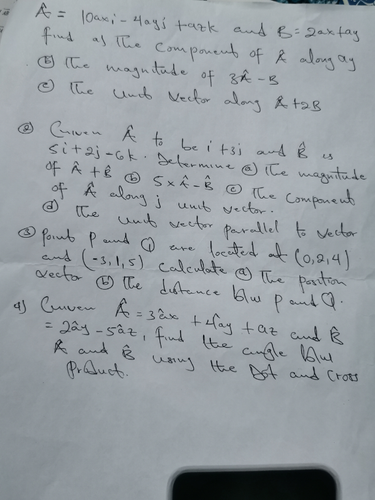 Â = 10axi - 4ayj + azk and B = 2ax + ay
find a) The Component of Â along ay
(b) The magnitude of 3Â - B
(c) The Unit Vector along Â + 2B
(2) Given Â to be i + 3j and B̂ is
5i + 2j - 6k. Determine (a) The magnitude
of Â + B̂ (b) 5 x Â - B̂ (c) The Component
of Â along j unit vector.
(d) The unit vector parallel to vector
(3) Point P and Q are located at (0,2,4)
and (-3,1,5) Calculate (a) The position
vector (b) The distance b/w P and Q.
4) Given Â = 3âx + 4ây + az and B̂
= 2ây - 5âz, find the angle b/w
Â and B̂ using the Dot and Cross
product.